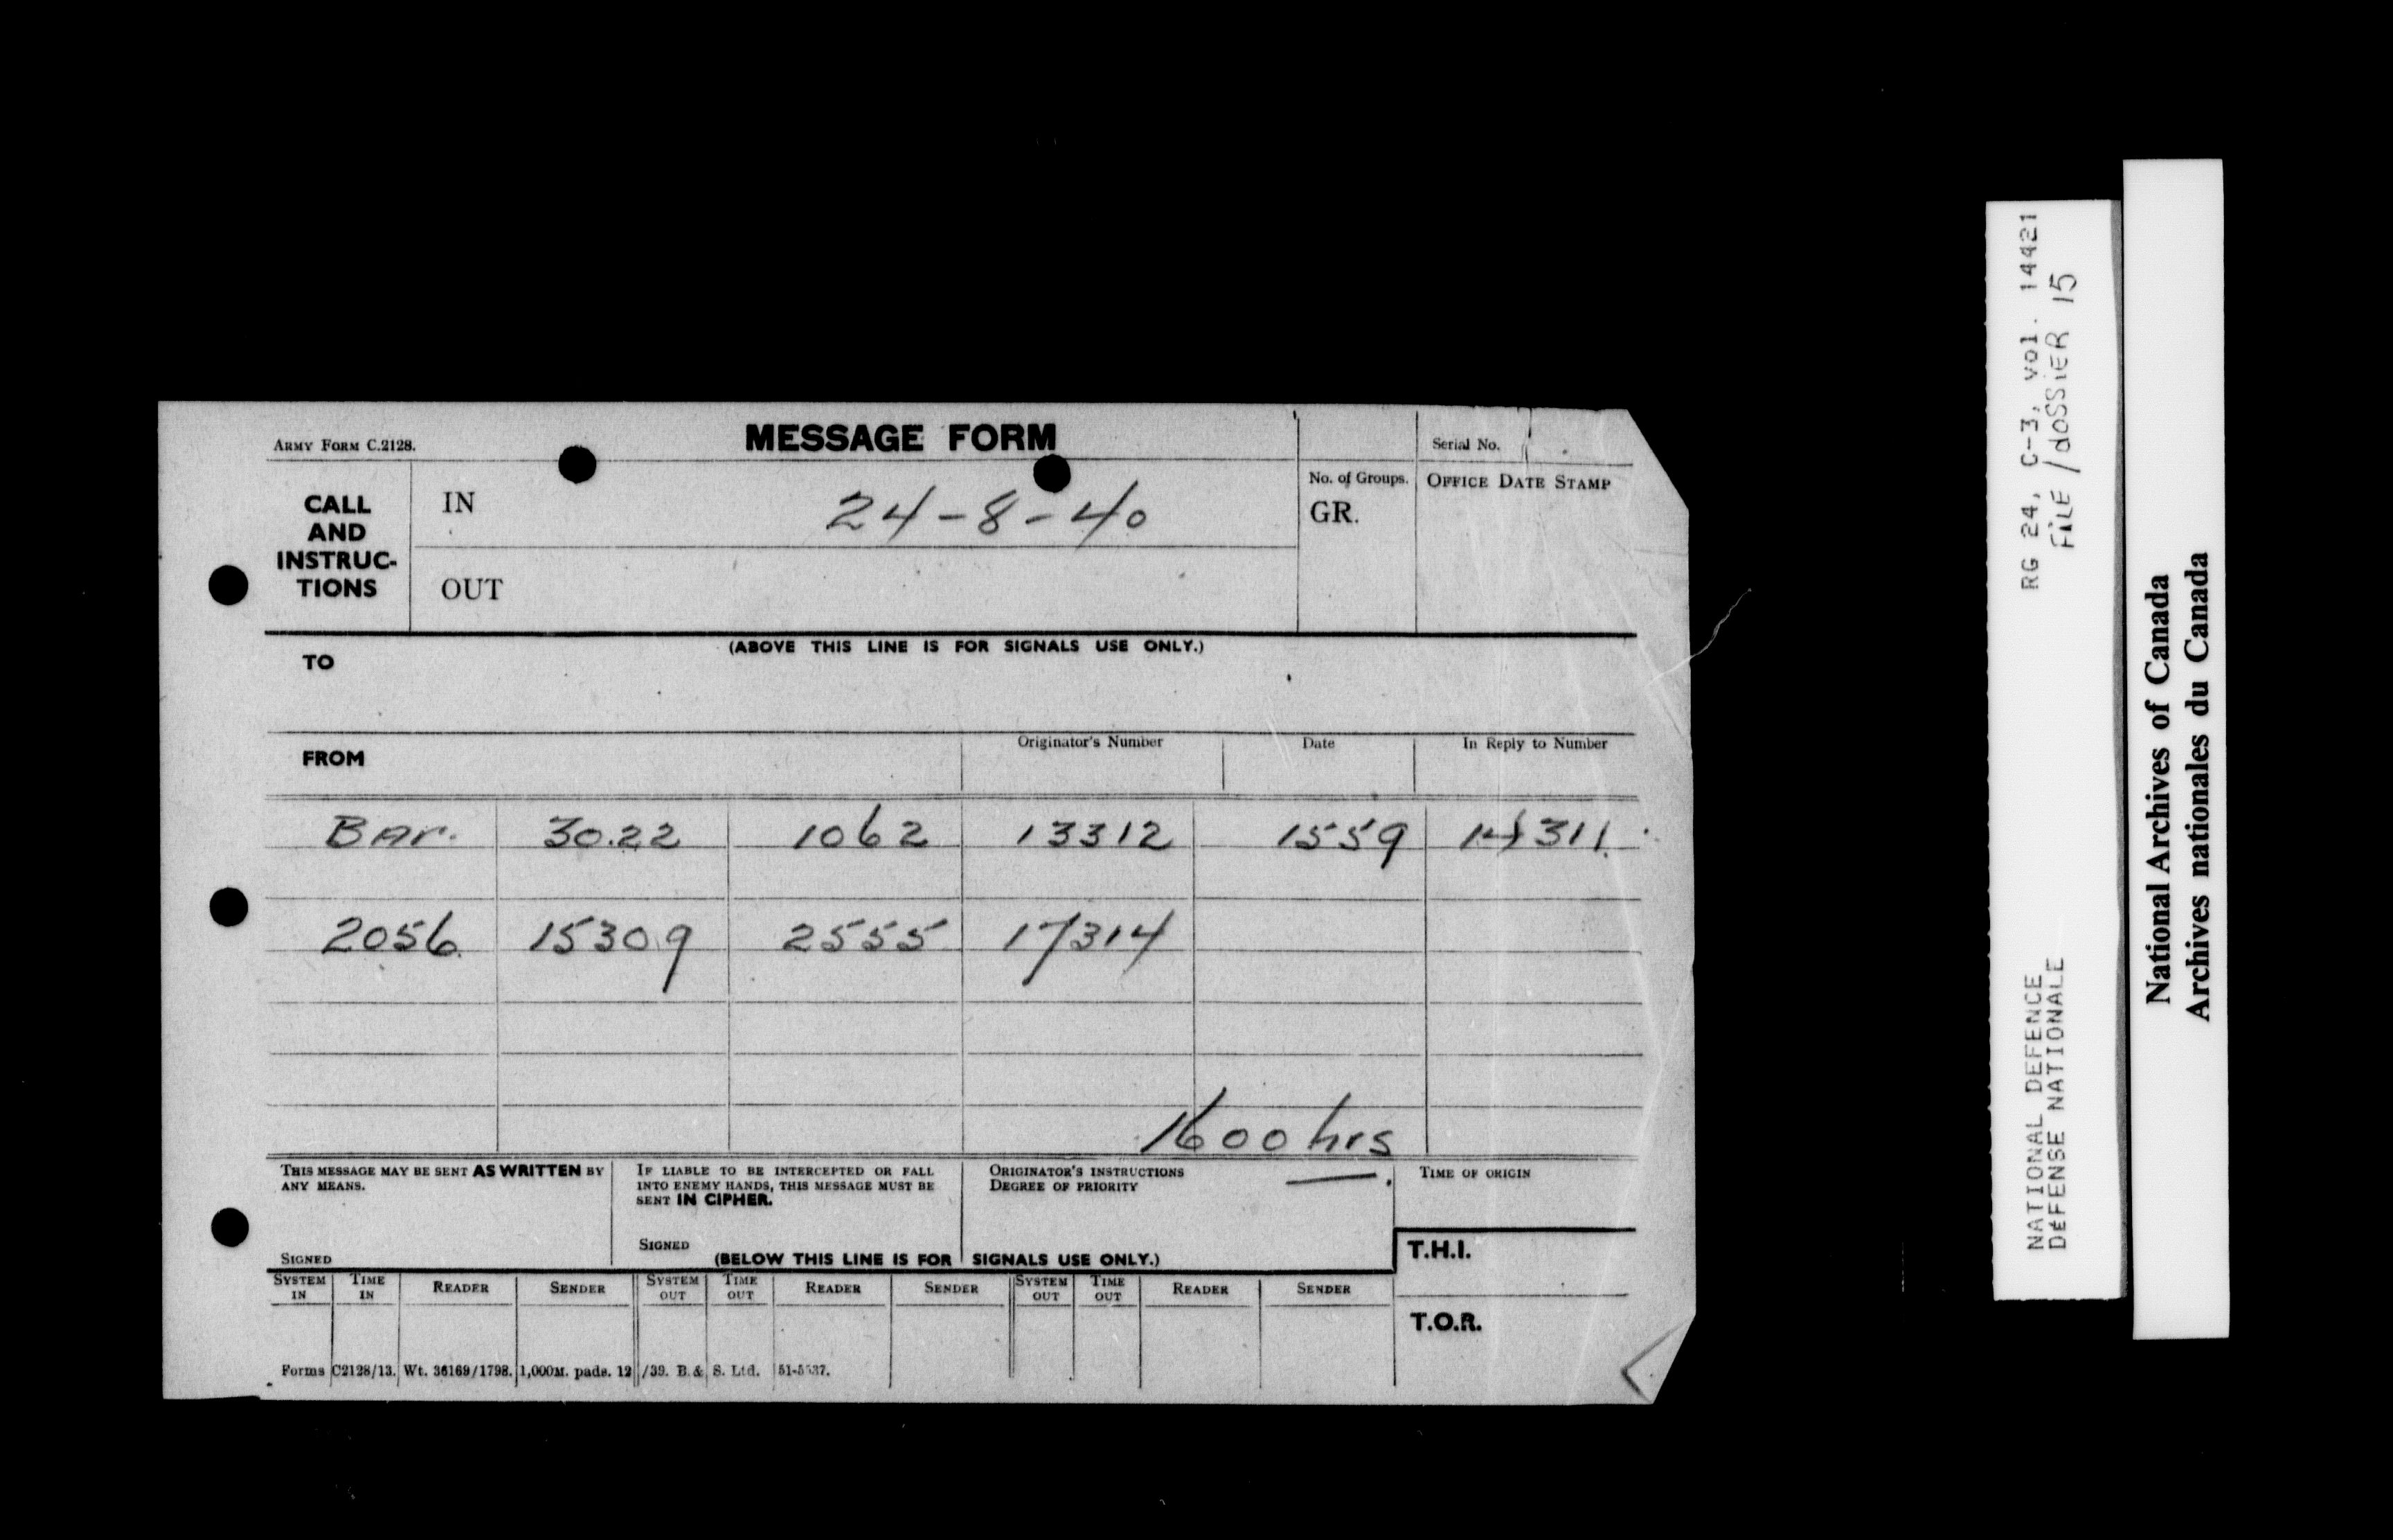 ARMY FORM C.2128.
MESSAGE FORM
Serial No.
CALL
AND
INSTRUC-
TIONS
IN
24-8-40
No. of Groups.
GR.
OFFICE DATE STAMP
OUT
(ABOVE THIS LINE IS FOR SIGNALS USE ONLY.)
TO
FROM
Originator's Number
Date
In Reply to Number
BAr. 30.22 1062 13312 1559 14311.
2056 15309 2555 17314
1600 hrs
THIS MESSAGE MAY BE SENT AS WRITTEN BY
ANY MEANS.
SIGNED
IF LIABLE TO BE INTERCEPTED OR FALL
INTO ENEMY HANDS, THIS MESSAGE MUST BE
SENT IN CIPHER.
SIGNED
ORIGINATOR'S INSTRUCTIONS
DEGREE OF PRIORITY
TIME OF ORIGIN
(BELOW THIS LINE IS FOR SIGNALS USE ONLY.)
T.H.I.
SYSTEM IN
TIME IN
READER
SENDER
SYSTEM OUT
TIME OUT
READER
SENDER
SYSTEM OUT
TIME OUT
READER
SENDER
T.O.R.
Forms C2128/13. Wt. 36169/1798. 1,000M. pads. 12/39. B. & S. Ltd.
RG 24, C-3, vol. 14421
FILE/dOSSiER 15
NATIONAL DEFENCE
DÉFENSE NATIONALE
National Archives of Canada
Archives nationales du Canada